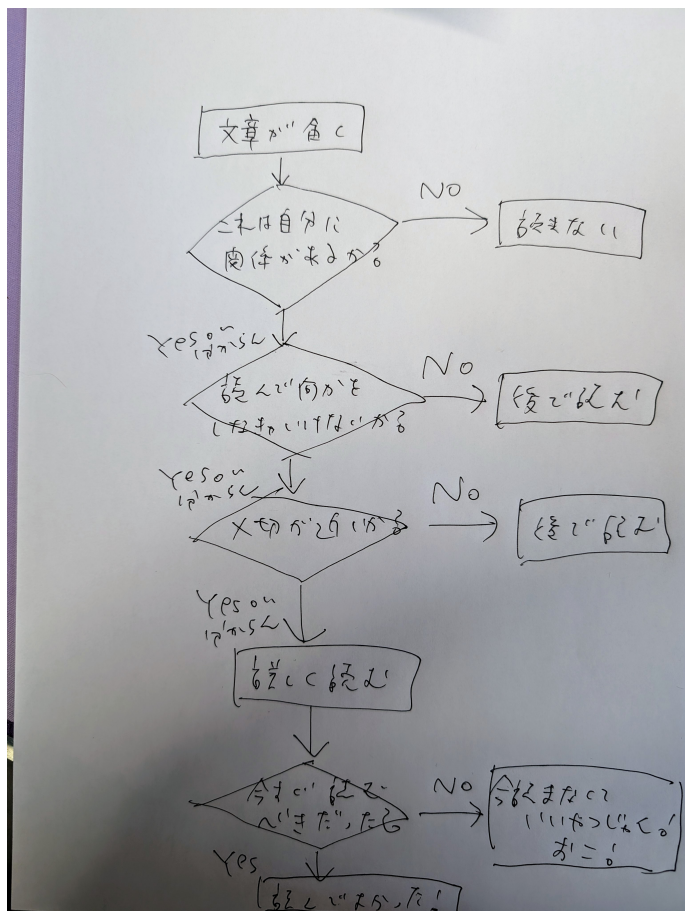 文章が届く
これは自分に
関係があるか?
NO
読まない
Yes or
わからん
読んで何かを
しなきゃいけないか?
No
後で読む
Yes or
わからん
〆切が近いか?
No
後で読む
Yes or
わからん
詳しく読む
今すぐ読む
べきだった?
NO
今読まなくて
いいやつじゃん!
おこ!
Yes
読んでよかった!